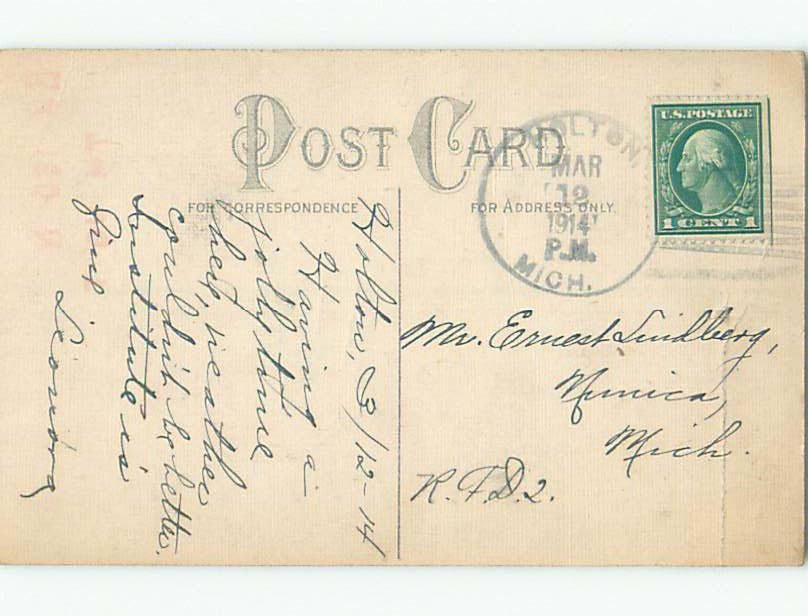 POST CARD
FOR CORRESPONDENCE
FOR ADDRESS ONLY
HOLTON
MAR
12
1914
P.M.
MICH.
U.S. POSTAGE
1 CENT 1
Holton, 3/12-14
Having a
jolly time
here, weather
couldn't be better.
Institute is
fine
Leonora
Mr. Ernest Lindberg,
Nunica,
Mich.
R.F.D. 2.